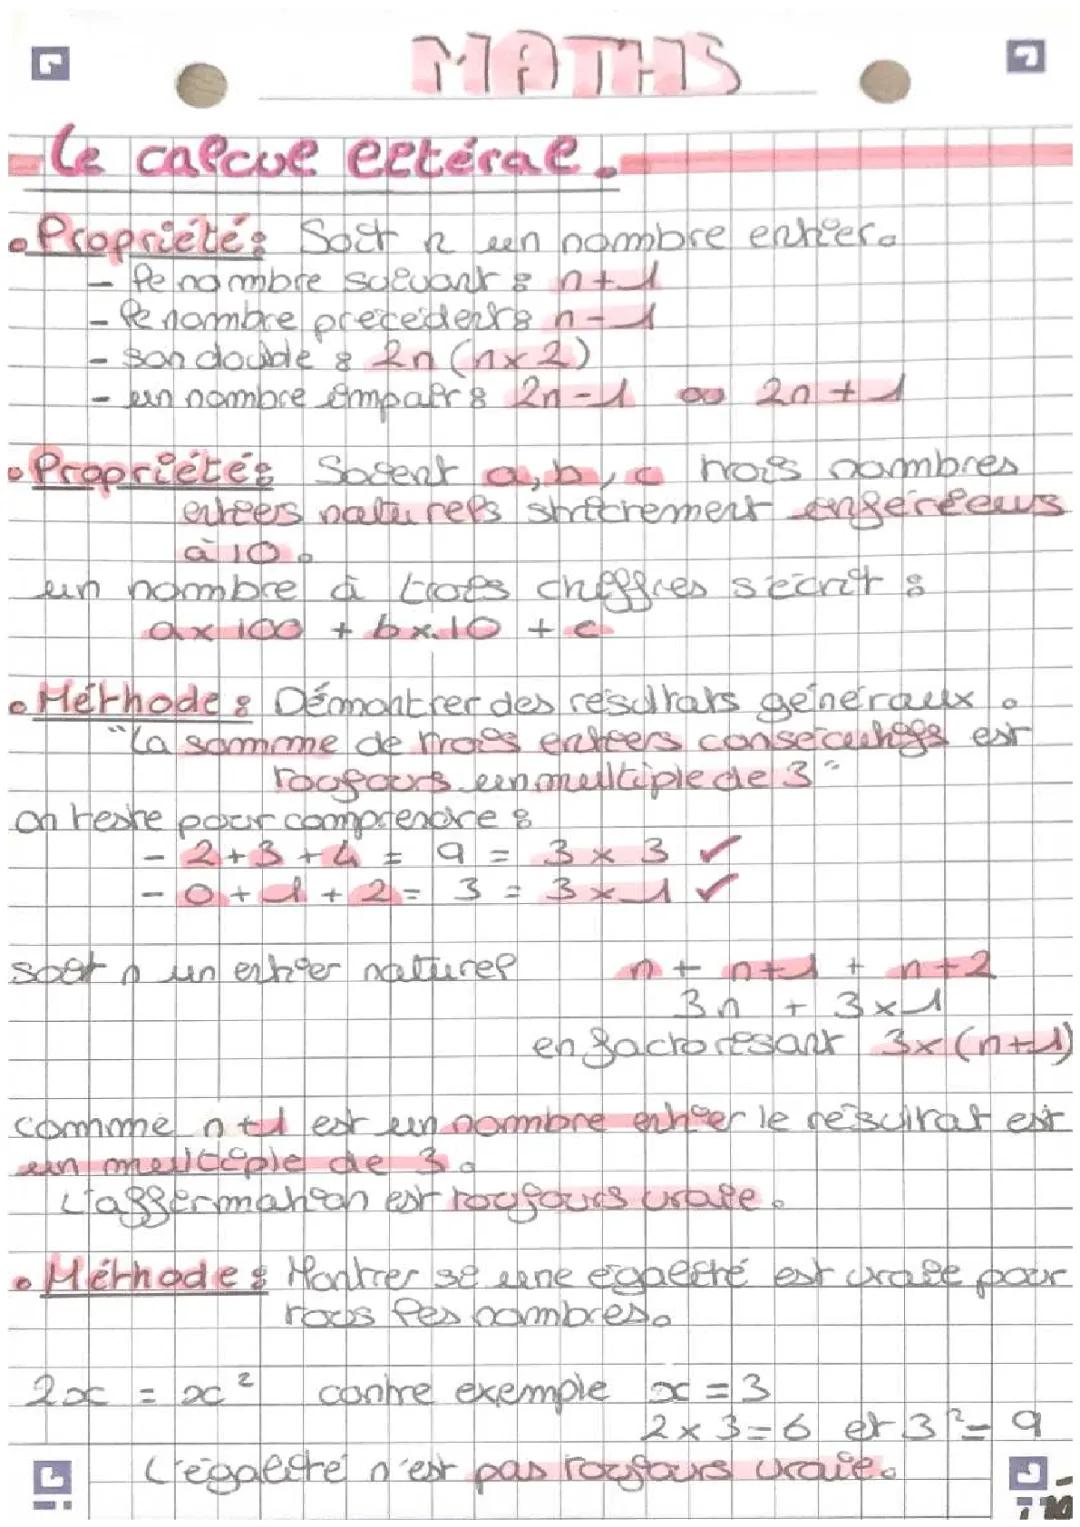 MATHS
Le calcul littéral.
• Propriété : Soit n un nombre entier.
- le nombre suivant : n+1
- le nombre précédent : n-1
- son double : 2n (n×2)
- un nombre impair : 2n-1 ou 2n+1
• Propriété : Soient a, b, c trois nombres
entiers naturels strictement inférieurs
à 10.
un nombre à trois chiffres s'écrit :
a×100 + b×10 + c
• Méthode : Démontrer des résultats généraux.
"La somme de trois entiers consécutifs est
toujours un multiple de 3"
on teste pour comprendre :
- 2+3+4 = 9 = 3×3 ✓
- 0+1+2 = 3 = 3×1 ✓
soit n un entier naturel n + n+1 + n+2
3n + 3×1
en factorisant 3×(n+1)
comme n+1 est un nombre entier le résultat est
un multiple de 3.
L'affirmation est toujours vraie.
• Méthode : Montrer si une égalité est vraie pour
tous les nombres.
2x = x² contre exemple x=3
2×3=6 et 3²=9
L'égalité n'est pas toujours vraie.